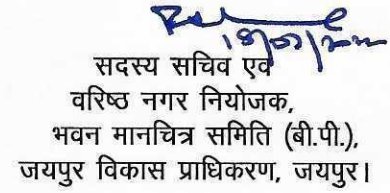 सदस्य सचिव एवं
वरिष्ठ नगर नियोजक,
भवन मानचित्र समिति (बी.पी.),
जयपुर विकास प्राधिकरण, जयपुर।